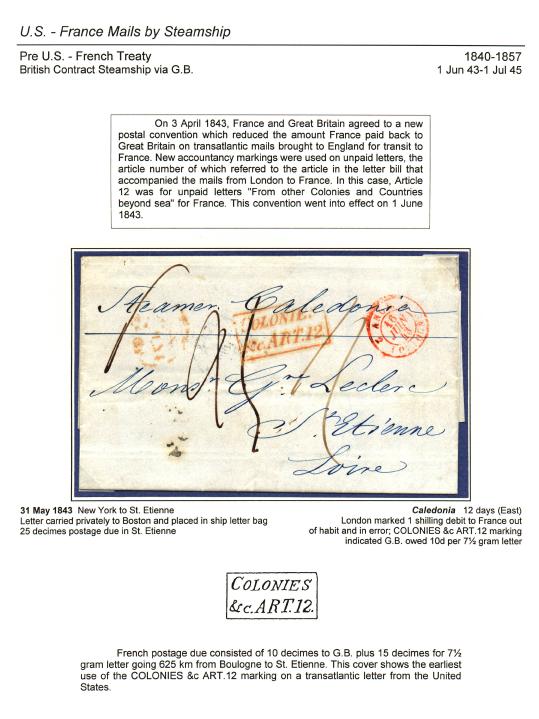 U.S. - France Mails by Steamship
Pre U.S. - French Treaty 1840-1857
British Contract Steamship via G.B. 1 Jun 43-1 Jul 45
On 3 April 1843, France and Great Britain agreed to a new
postal convention which reduced the amount France paid back to
Great Britain on transatlantic mails brought to England for transit to
France. New accountancy markings were used on unpaid letters, the
article number of which referred to the article in the letter bill that
accompanied the mails from London to France. In this case, Article
12 was for unpaid letters "From other Colonies and Countries
beyond sea" for France. This convention went into effect on 1 June
1843.
Steamer Caledonia
COLONIES
&c. ART.12
Monsr Gme Leclerc
St Etienne
Loire
31 May 1843 New York to St. Etienne
Letter carried privately to Boston and placed in ship letter bag
25 decimes postage due in St. Etienne
Caledonia 12 days (East)
London marked 1 shilling debit to France out
of habit and in error; COLONIES &c ART.12 marking
indicated G.B. owed 10d per 7½ gram letter
COLONIES
&c. ART.12.
French postage due consisted of 10 decimes to G.B. plus 15 decimes for 7½
gram letter going 625 km from Boulogne to St. Etienne. This cover shows the earliest
use of the COLONIES &c ART.12 marking on a transatlantic letter from the United
States.